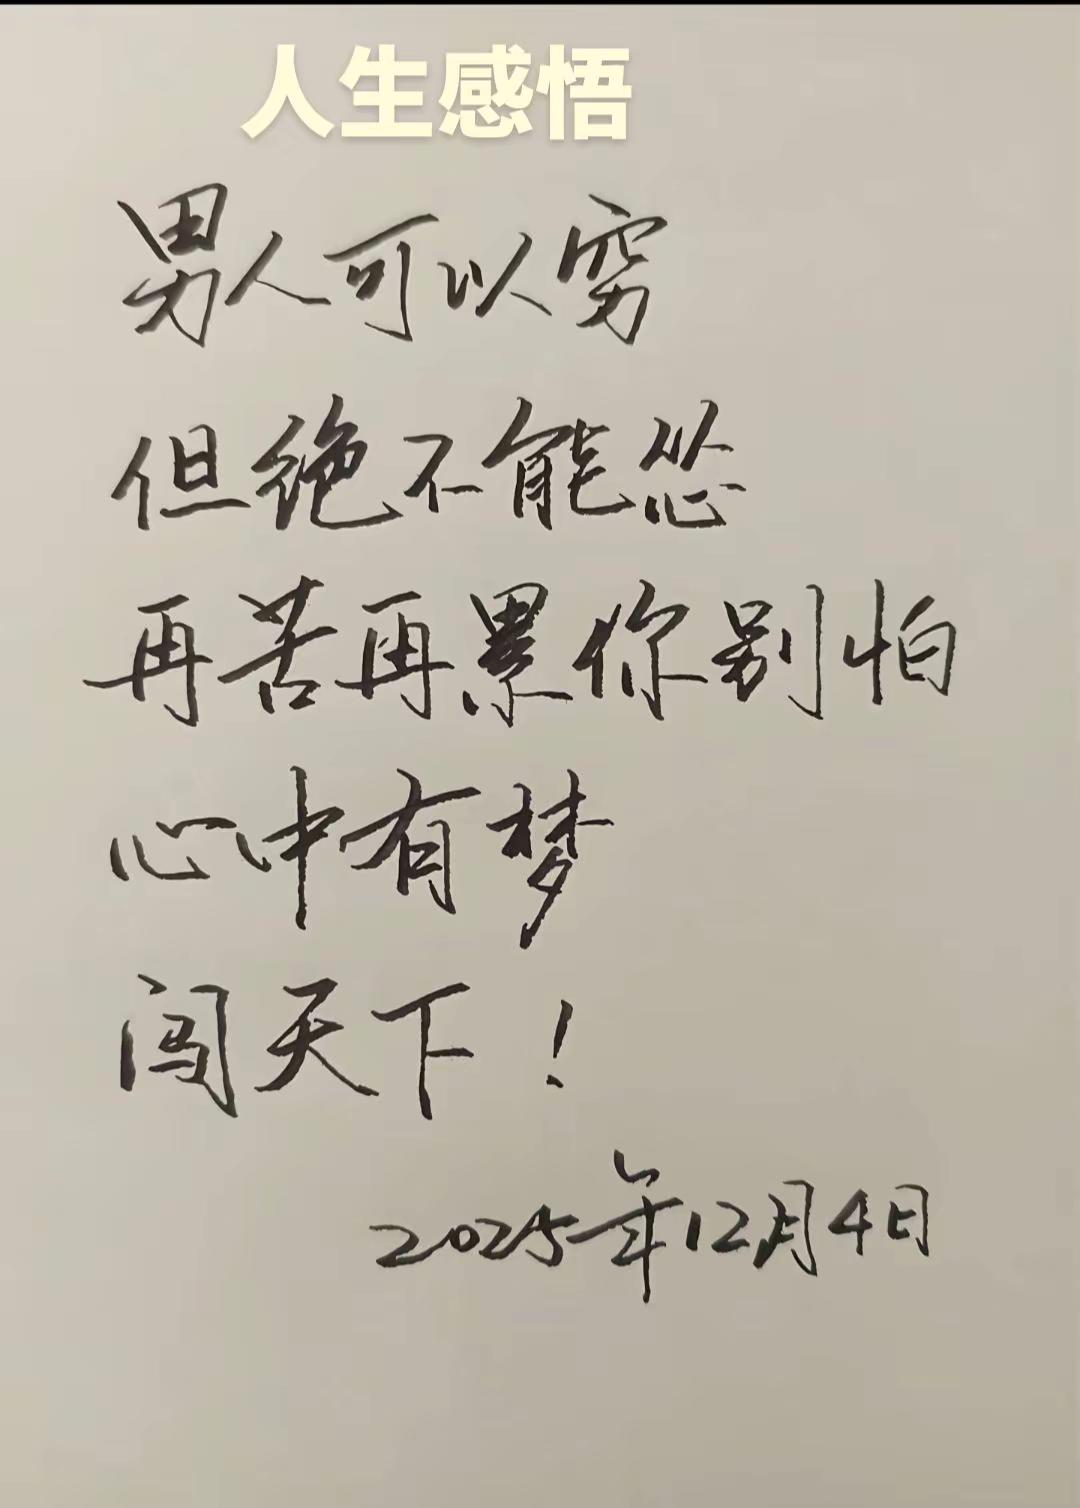 人生感悟
男人可以穷
但绝不能怂
再苦再累你别怕
心中有梦
闯天下！
2025年12月4日